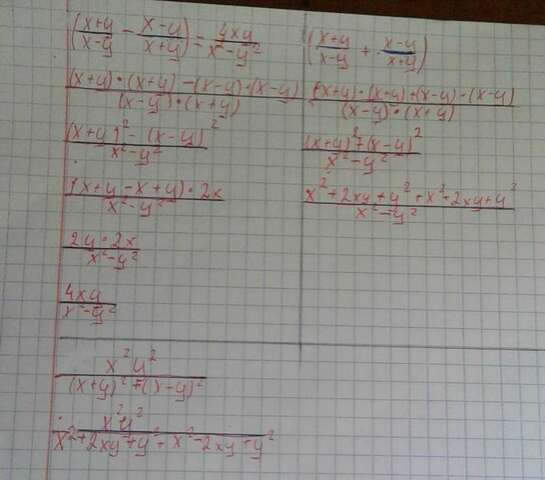 ((x+y)/(x-y) - (x-y)/(x+y)) = 4xy/(x²-y²)
((x+y)·(x+y)-(x-y)·(x-y))/((x-y)·(x+y))
((x+y)²-(x-y)²)/(x²-y²)
((x+y-x+y)·2x)/(x²-y²)
(2y·2x)/(x²-y²)
4xy/(x²-y²)
((x+y)/(x-y) + (x-y)/(x+y))
((x+y)·(x+y)+(x-y)-(x-y))/((x-y)·(x+y))
((x+y)²+(x-y)²)/(x²-y²)
(x²+2xy+y²+x²-2xy+y²)/(x²-y²)
x²y²/((x+y)²+(x-y)²)
x²y²/(x²+2xy+y²+x²-2xy+y²)